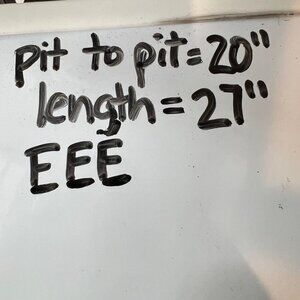 pit to pit = 20"
length = 27"
EEE